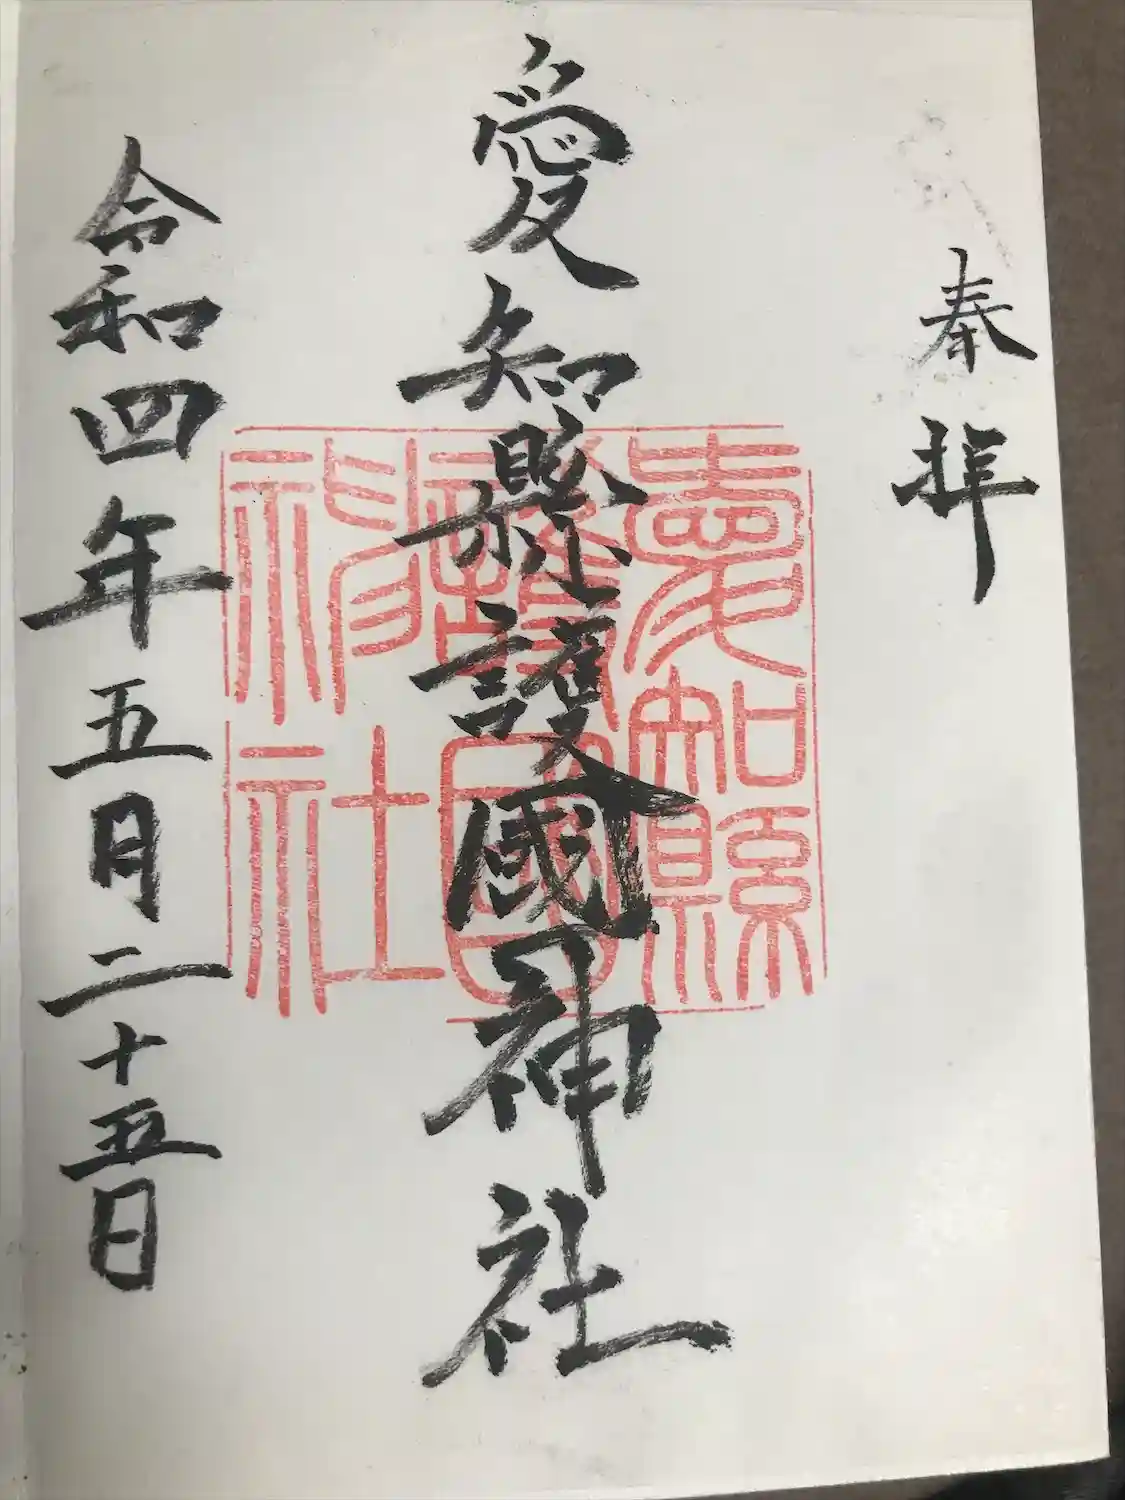 奉拝
愛知縣護國神社
愛知縣
護國
神社
令和四年五月二十五日